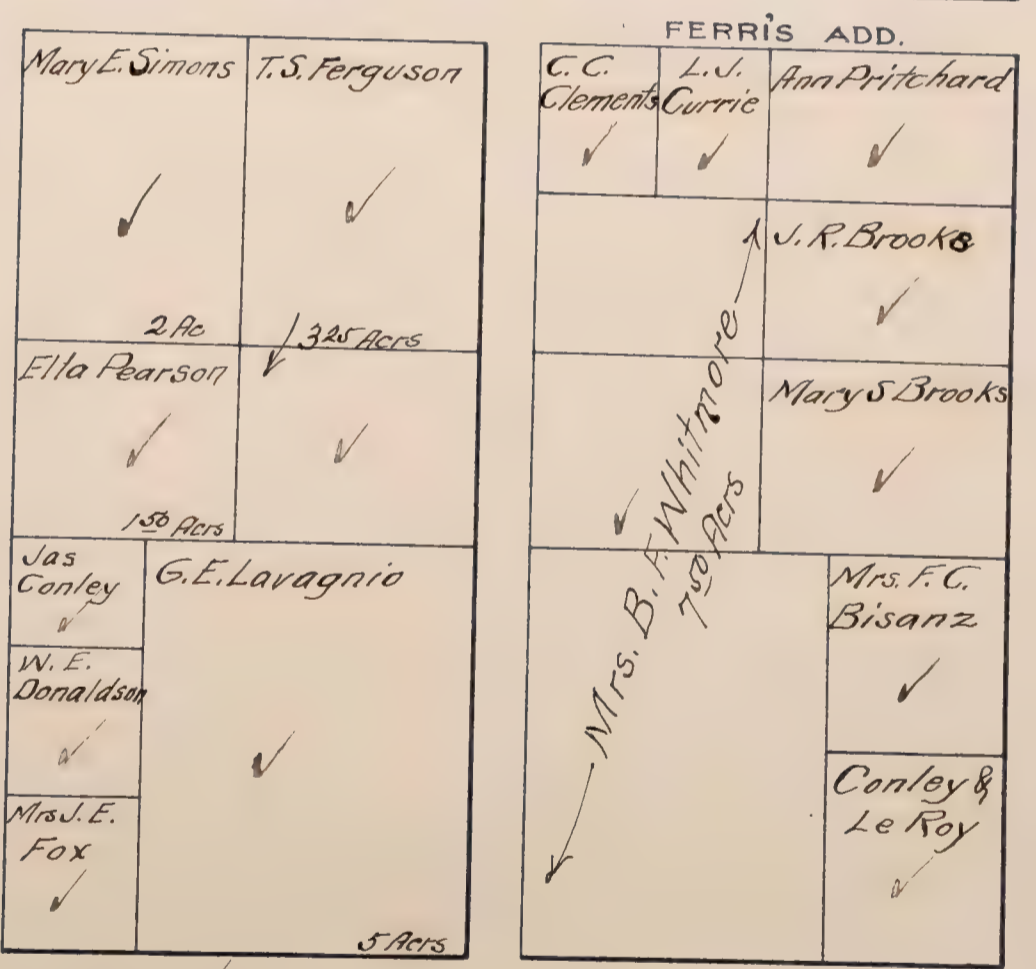 FERRI'S ADD.
Mary E. Simons
T. S. Ferguson
2 Ac
3 25 Acrs
Elta Pearson
1 50 Acrs
Jas
Conley
G. E. Lavagnio
W. E.
Donaldson
Mrs J. E.
Fox
5 Acrs
C. C.
Clements
L. J.
Currie
Ann Pritchard
J. R. Brooks
Mary S Brooks
Mrs. B. F. Whitmore
7 50 Acrs
Mrs. F. C.
Bisanz
Conley &
Le Roy